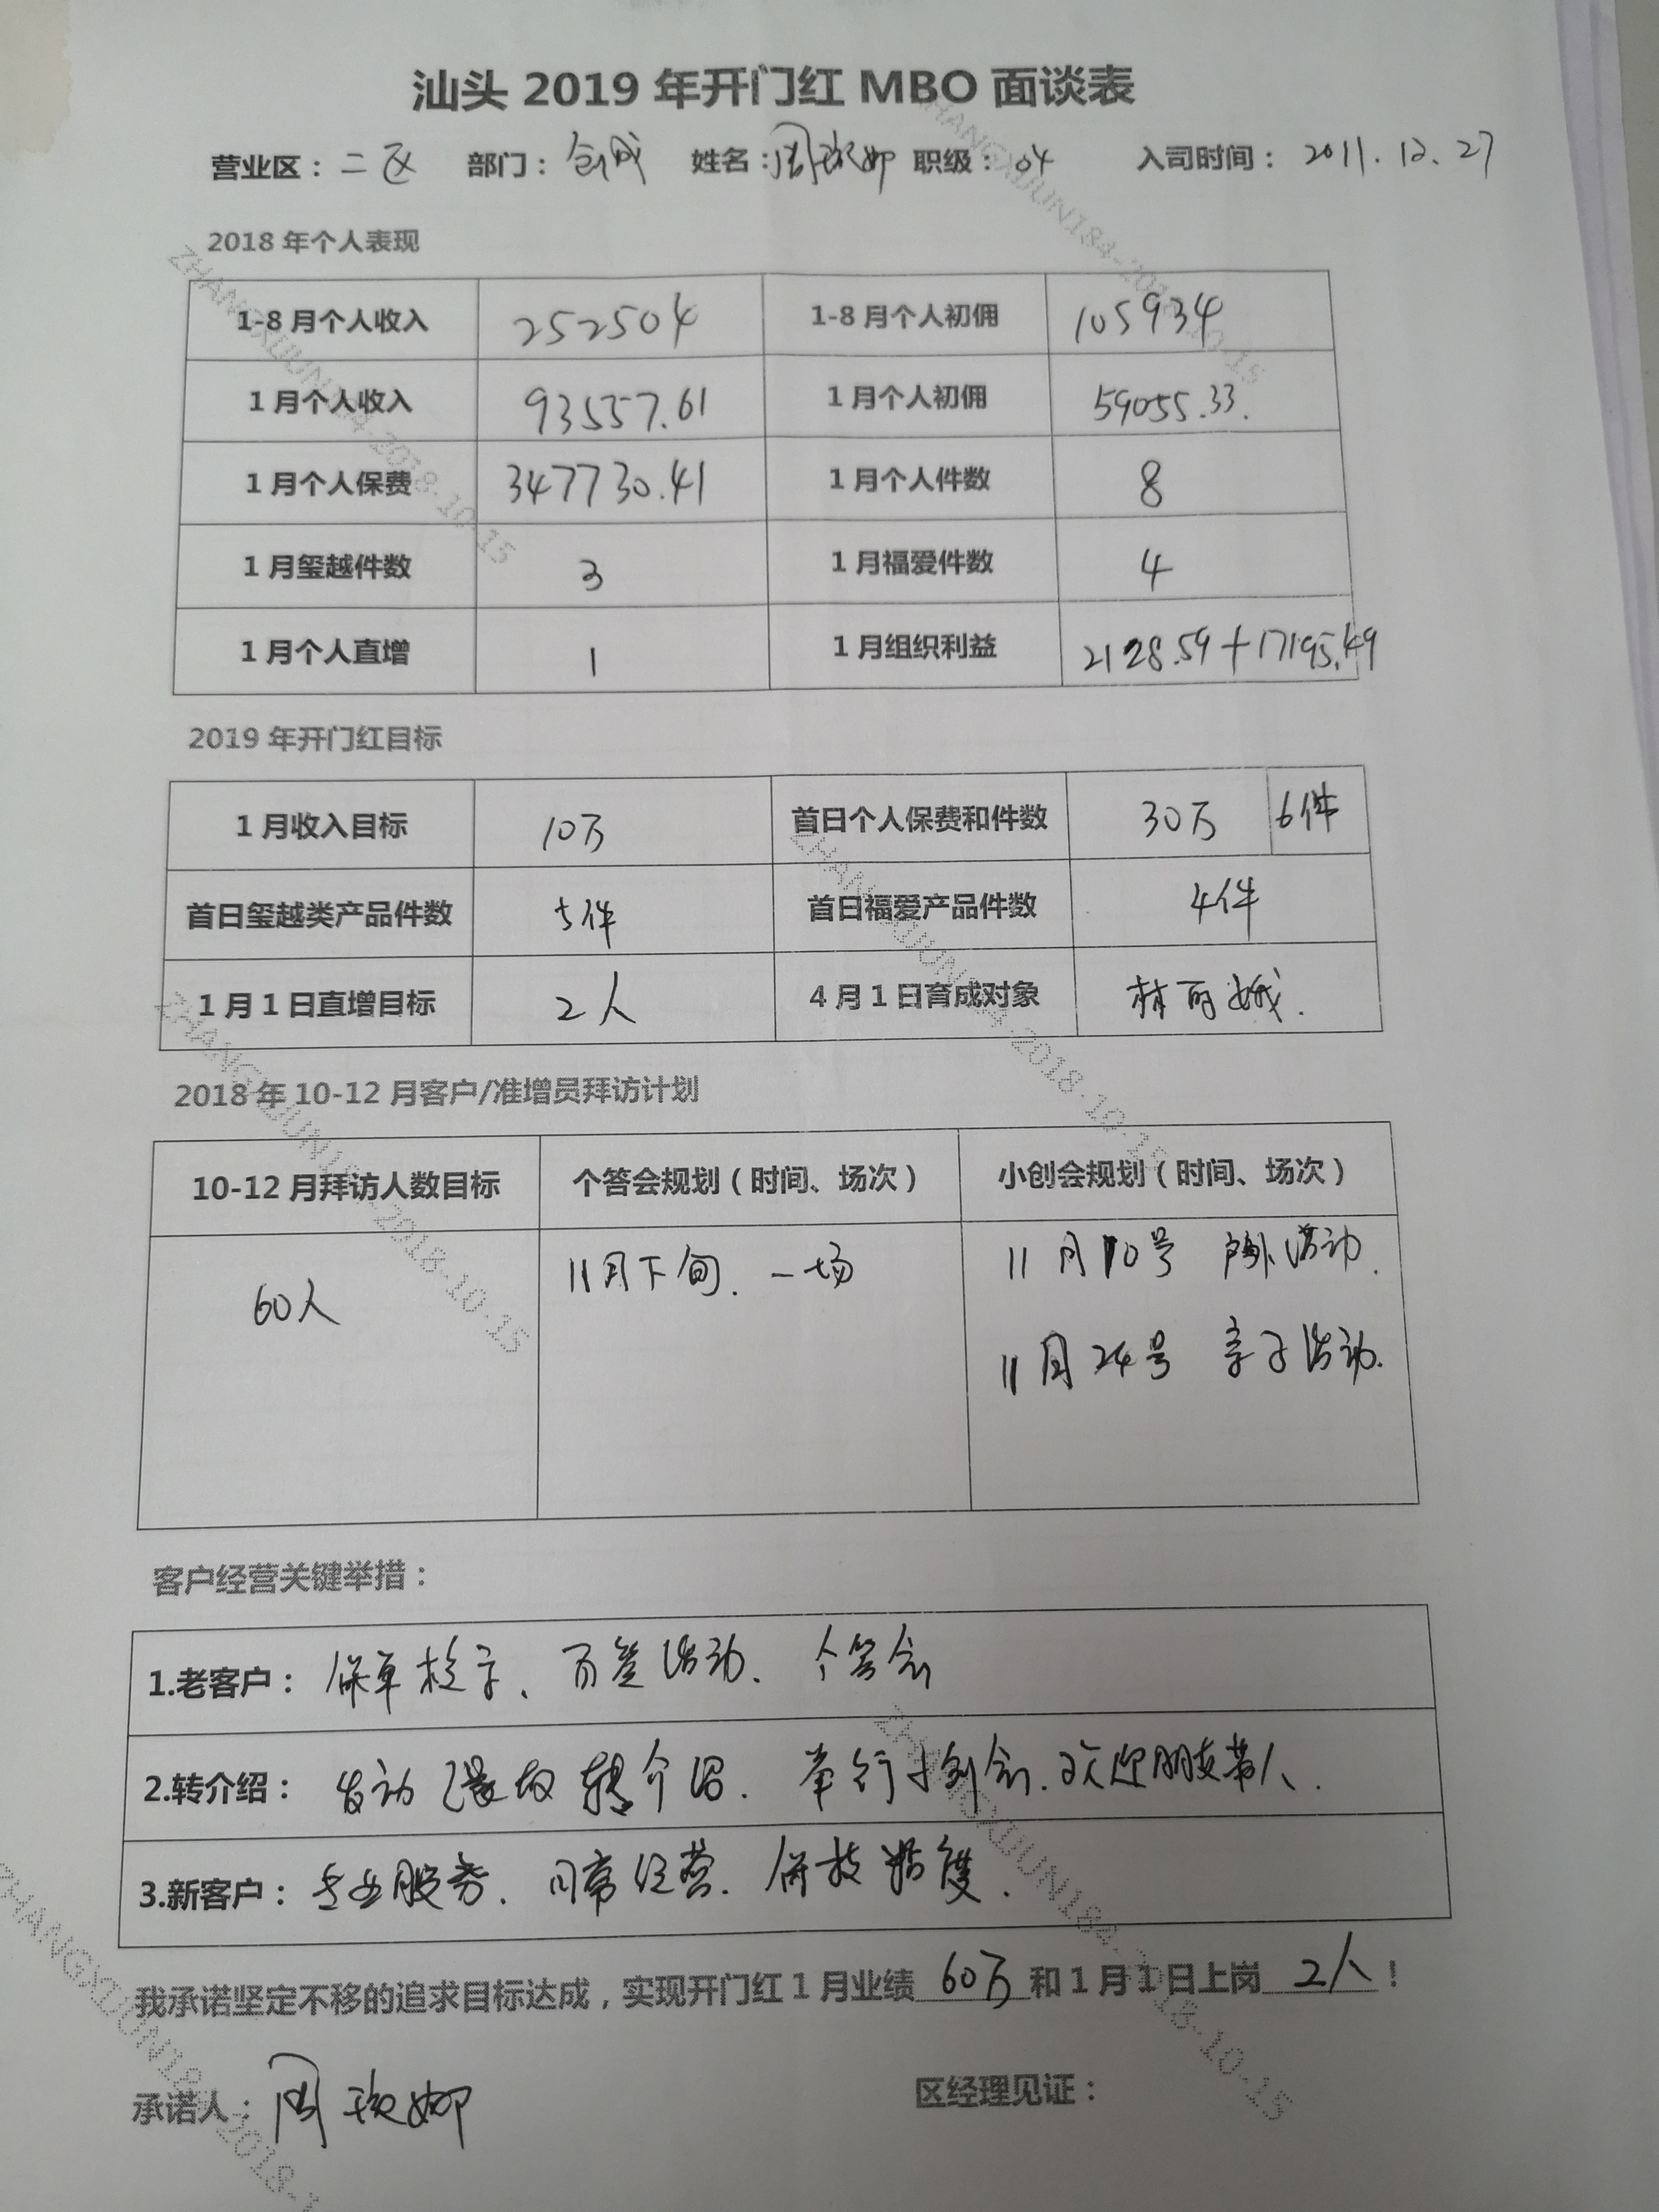 汕头 2019 年开门红 MBO 面谈表
营业区：二区 部门：创成 姓名：周璇娜 职级：04 入司时间：2011.12.27
2018 年个人表现
1-8 月个人收入 252504 1-8 月个人初佣 105934
1 月个人收入 93557.61 1 月个人初佣 59055.33.
1 月个人保费 347730.41 1 月个人件数 8
1 月玺越件数 3 1 月福爱件数 4
1 月个人直增 1 1 月组织利益 2128.59+17195.49
2019 年开门红目标
1 月收入目标 10万 首日个人保费和件数 30万 6件
首日玺越类产品件数 5件 首日福爱产品件数 4件
1 月 1 日直增目标 2人 4 月 1 日育成对象 林丽娥.
2018 年 10-12 月客户/准增员拜访计划
10-12 月拜访人数目标 个答会规划（时间、场次） 小创会规划（时间、场次）
60人 11月下旬. 一场 11月10号 户外活动.
11月24号 亲子活动.
客户经营关键举措：
1.老客户：保单检示、活动、个答会
2.转介绍：发动缘故转介绍. 举行小创会.欢迎朋友带人.
3.新客户：专业服务. 日常经营. 保持黏度.
我承诺坚定不移的追求目标达成，实现开门红 1 月业绩 60万 和 1 月 1 日上岗 2人！
承诺人：周璇娜 区经理见证：
ZHANGXIJUN184-2018-10-15